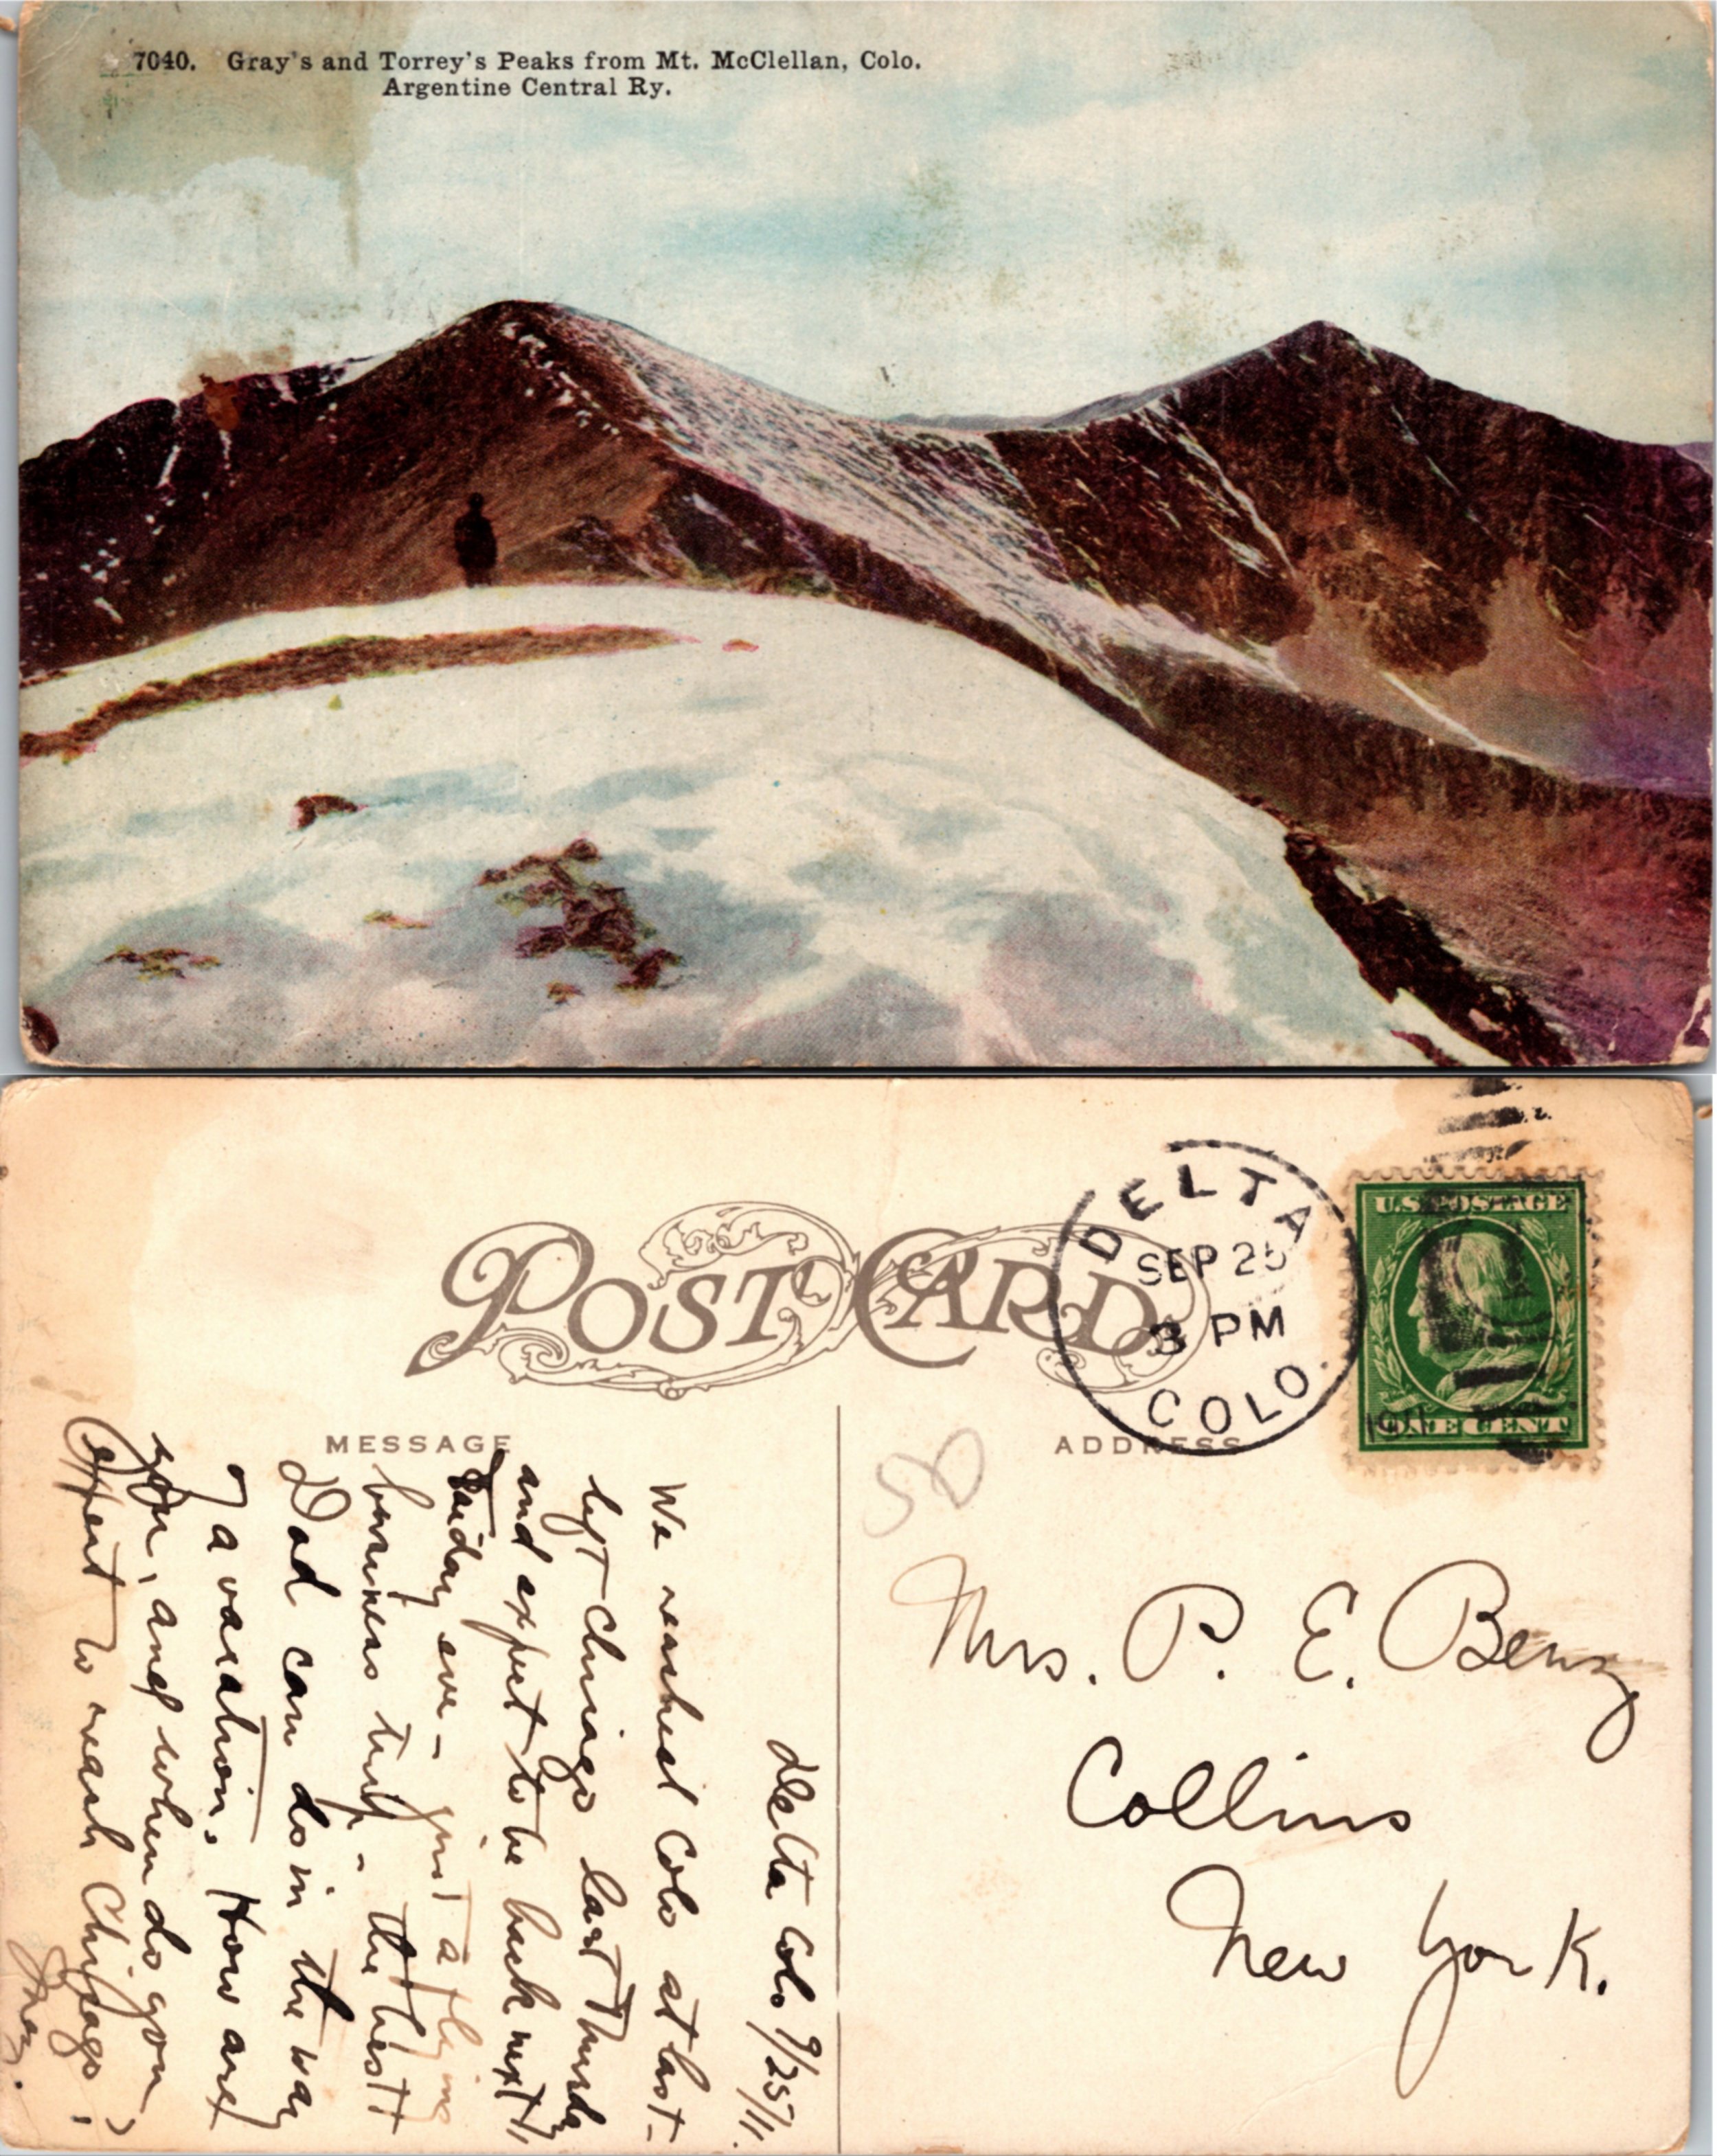 7040. Gray's and Torrey's Peaks from Mt. McClellan, Colo.
Argentine Central Ry.
POST CARD
DELTA
SEP 25
3 PM
COLO.
1911
U.S. POSTAGE
ONE CENT
MESSAGE
ADDRESS
50
Delta Colo 9/25/11.
We reached Colo at last –
left Chicago last Thursday
and expect to be back next
Friday eve – just a flying
business trip – the best
Dad can do in the way
of a vacation. How are
you, and when do you
expect to reach Chicago?
Mrs. P. E. Benz
Collins
New York.